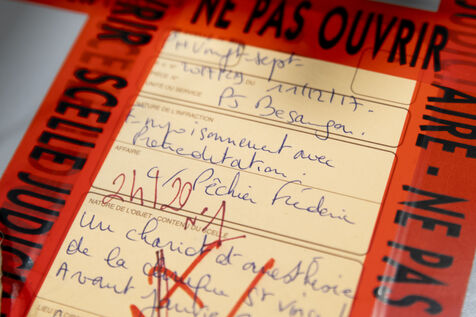 NE PAS OUVRIR
SCELLÉ JUDICIAIRE
Vingt-sept
PIÈCE N°
11/12/17.
UNITÉ OU SERVICE
PJ Besançon.
NATURE DE L'INFRACTION
Empoisonnement avec
Préméditation.
AFFAIRE
C/ Péchier Frédéric
NATURE DE L'OBJET - CONTENU DU SCELLÉ
Un chariot d'anesthésie
de la clinique St Vincent
Avant janvier
LIEU D
DICIAIRE - NE PAS